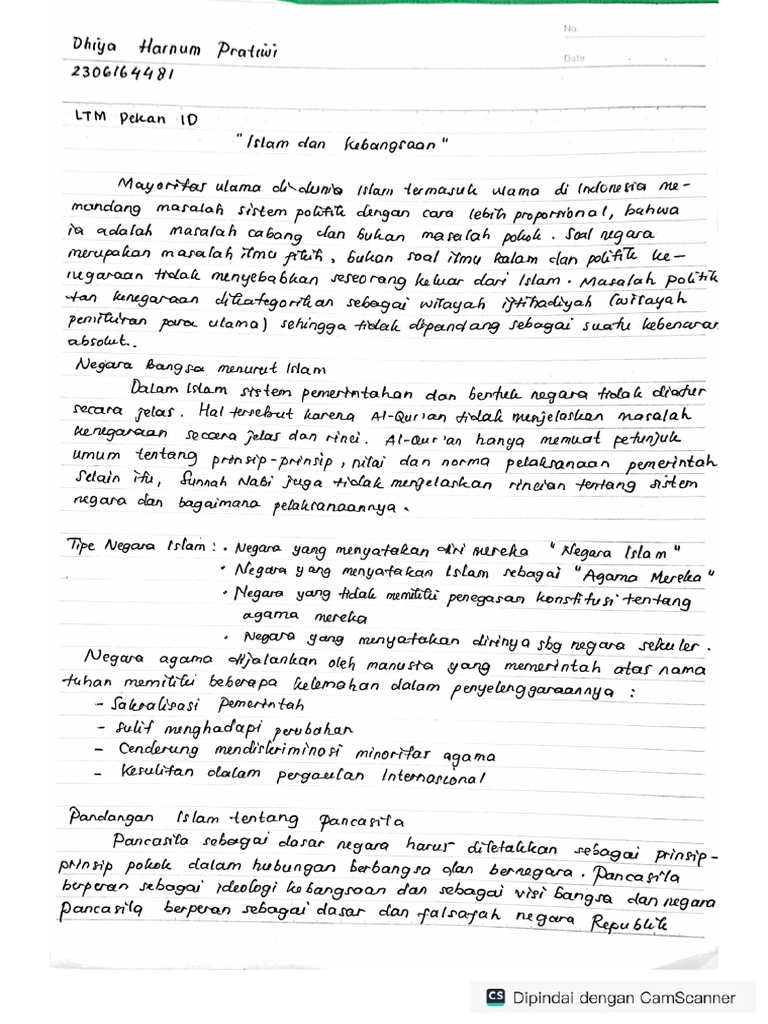 No.
Date
Dhiya Harnum Pratiwi
2306164481
LTM Pekan 10
"Islam dan Kebangsaan"
Mayoritas ulama di dunia Islam termasuk ulama di Indonesia me-
mandang masalah sistem politik dengan cara lebih proporsional, bahwa
ia adalah masalah cabang dan bukan masalah pokok. Soal negara
merupakan masalah ilmu fikih, bukan soal ilmu kalam dan politik ke-
negaraan tidak menyebabkan seseorang keluar dari Islam. Masalah politik
tan kenegaraan dikategorikan sebagai wilayah ijtihadiyah (wilayah
pemikiran para ulama) sehingga tidak dipandang sebagai suatu kebenaran
absolut..
Negara Bangsa menurut Islam
Dalam Islam sistem pemerintahan dan bentuk negara tidak diatur
secara jelas. Hal tersebut karena Al-Qur'an tidak menjelaskan masalah
kenegaraan secara jelas dan rinci. Al-Qur'an hanya memuat petunjuk
umum tentang prinsip-prinsip, nilai dan norma pelaksanaan pemerintah
Selain itu, Sunnah Nabi juga tidak menjelaskan rincian tentang sistem
negara dan bagaimana pelaksanaannya.
Tipe Negara Islam : • Negara yang menyatakan diri mereka "Negara Islam"
• Negara yang menyatakan Islam sebagai "Agama Mereka"
• Negara yang tidak memiliki penegasan konstitusi tentang
agama mereka
• Negara yang menyatakan dirinya sbg negara sekuler.
Negara agama dijalankan oleh manusia yang memerintah atas nama
tuhan memiliki beberapa kelemahan dalam penyelenggaraannya :
- Sakralisasi Pemerintah
- Sulit menghadapi perubahan
- Cenderung mendiskriminasi minoritas agama
- Kesulitan dalam pergaulan Internasional
Pandangan Islam tentang Pancasila
Pancasila sebagai dasar negara harus diletakkan sebagai prinsip-
prinsip pokok dalam hubungan berbangsa dan bernegara. Pancasila
berperan sebagai ideologi kebangsaan dan sebagai visi bangsa dan negara
Pancasila berperan sebagai dasar dan falsafah negara Republik
CS Dipindai dengan CamScanner